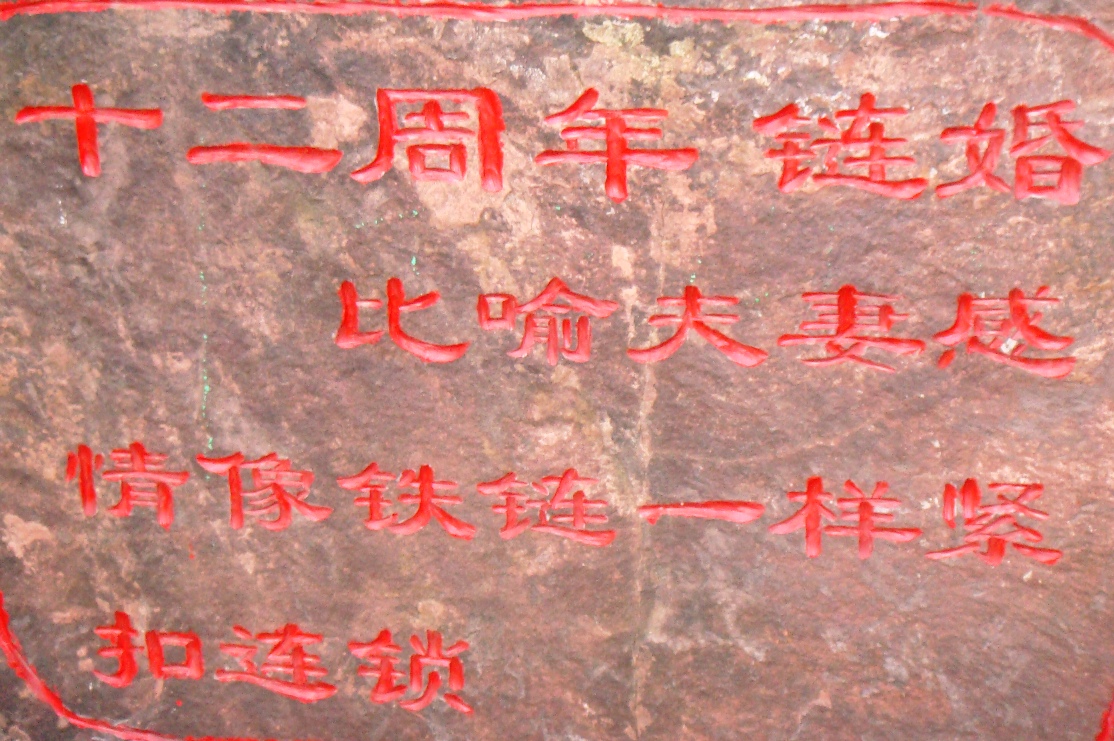 十二周年 链婚
比喻夫妻感
情像铁链一样紧
扣连锁